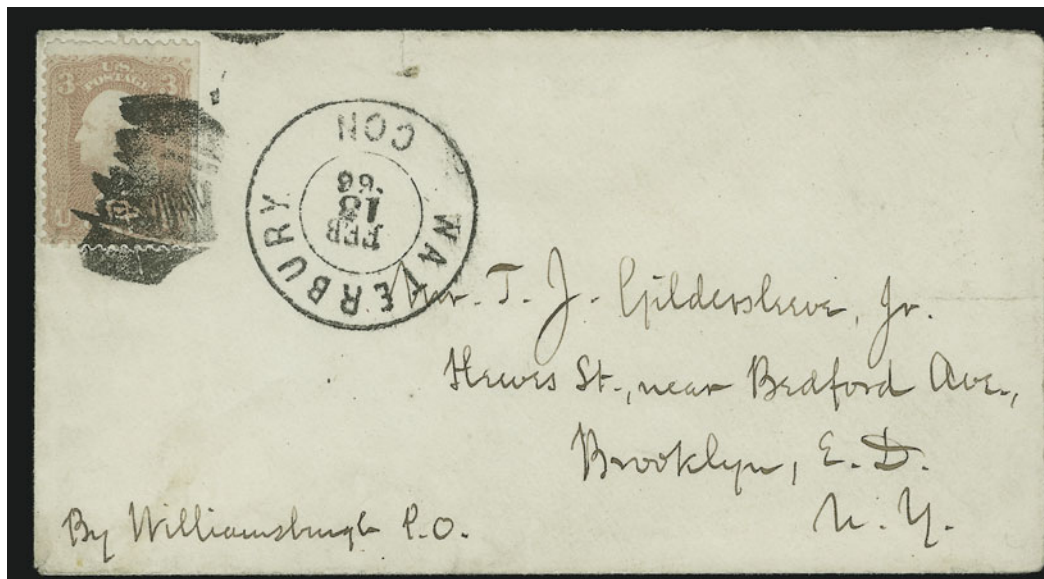 U.S.
POSTAGE
3 3
U
WATERBURY
CON
FEB
13
'66
Mr. T. J. Gildersleeve, Jr.
Hewes St., near Bedford Ave.,
Brooklyn, E. D.
N. Y.
By Williamsburgh P.O.